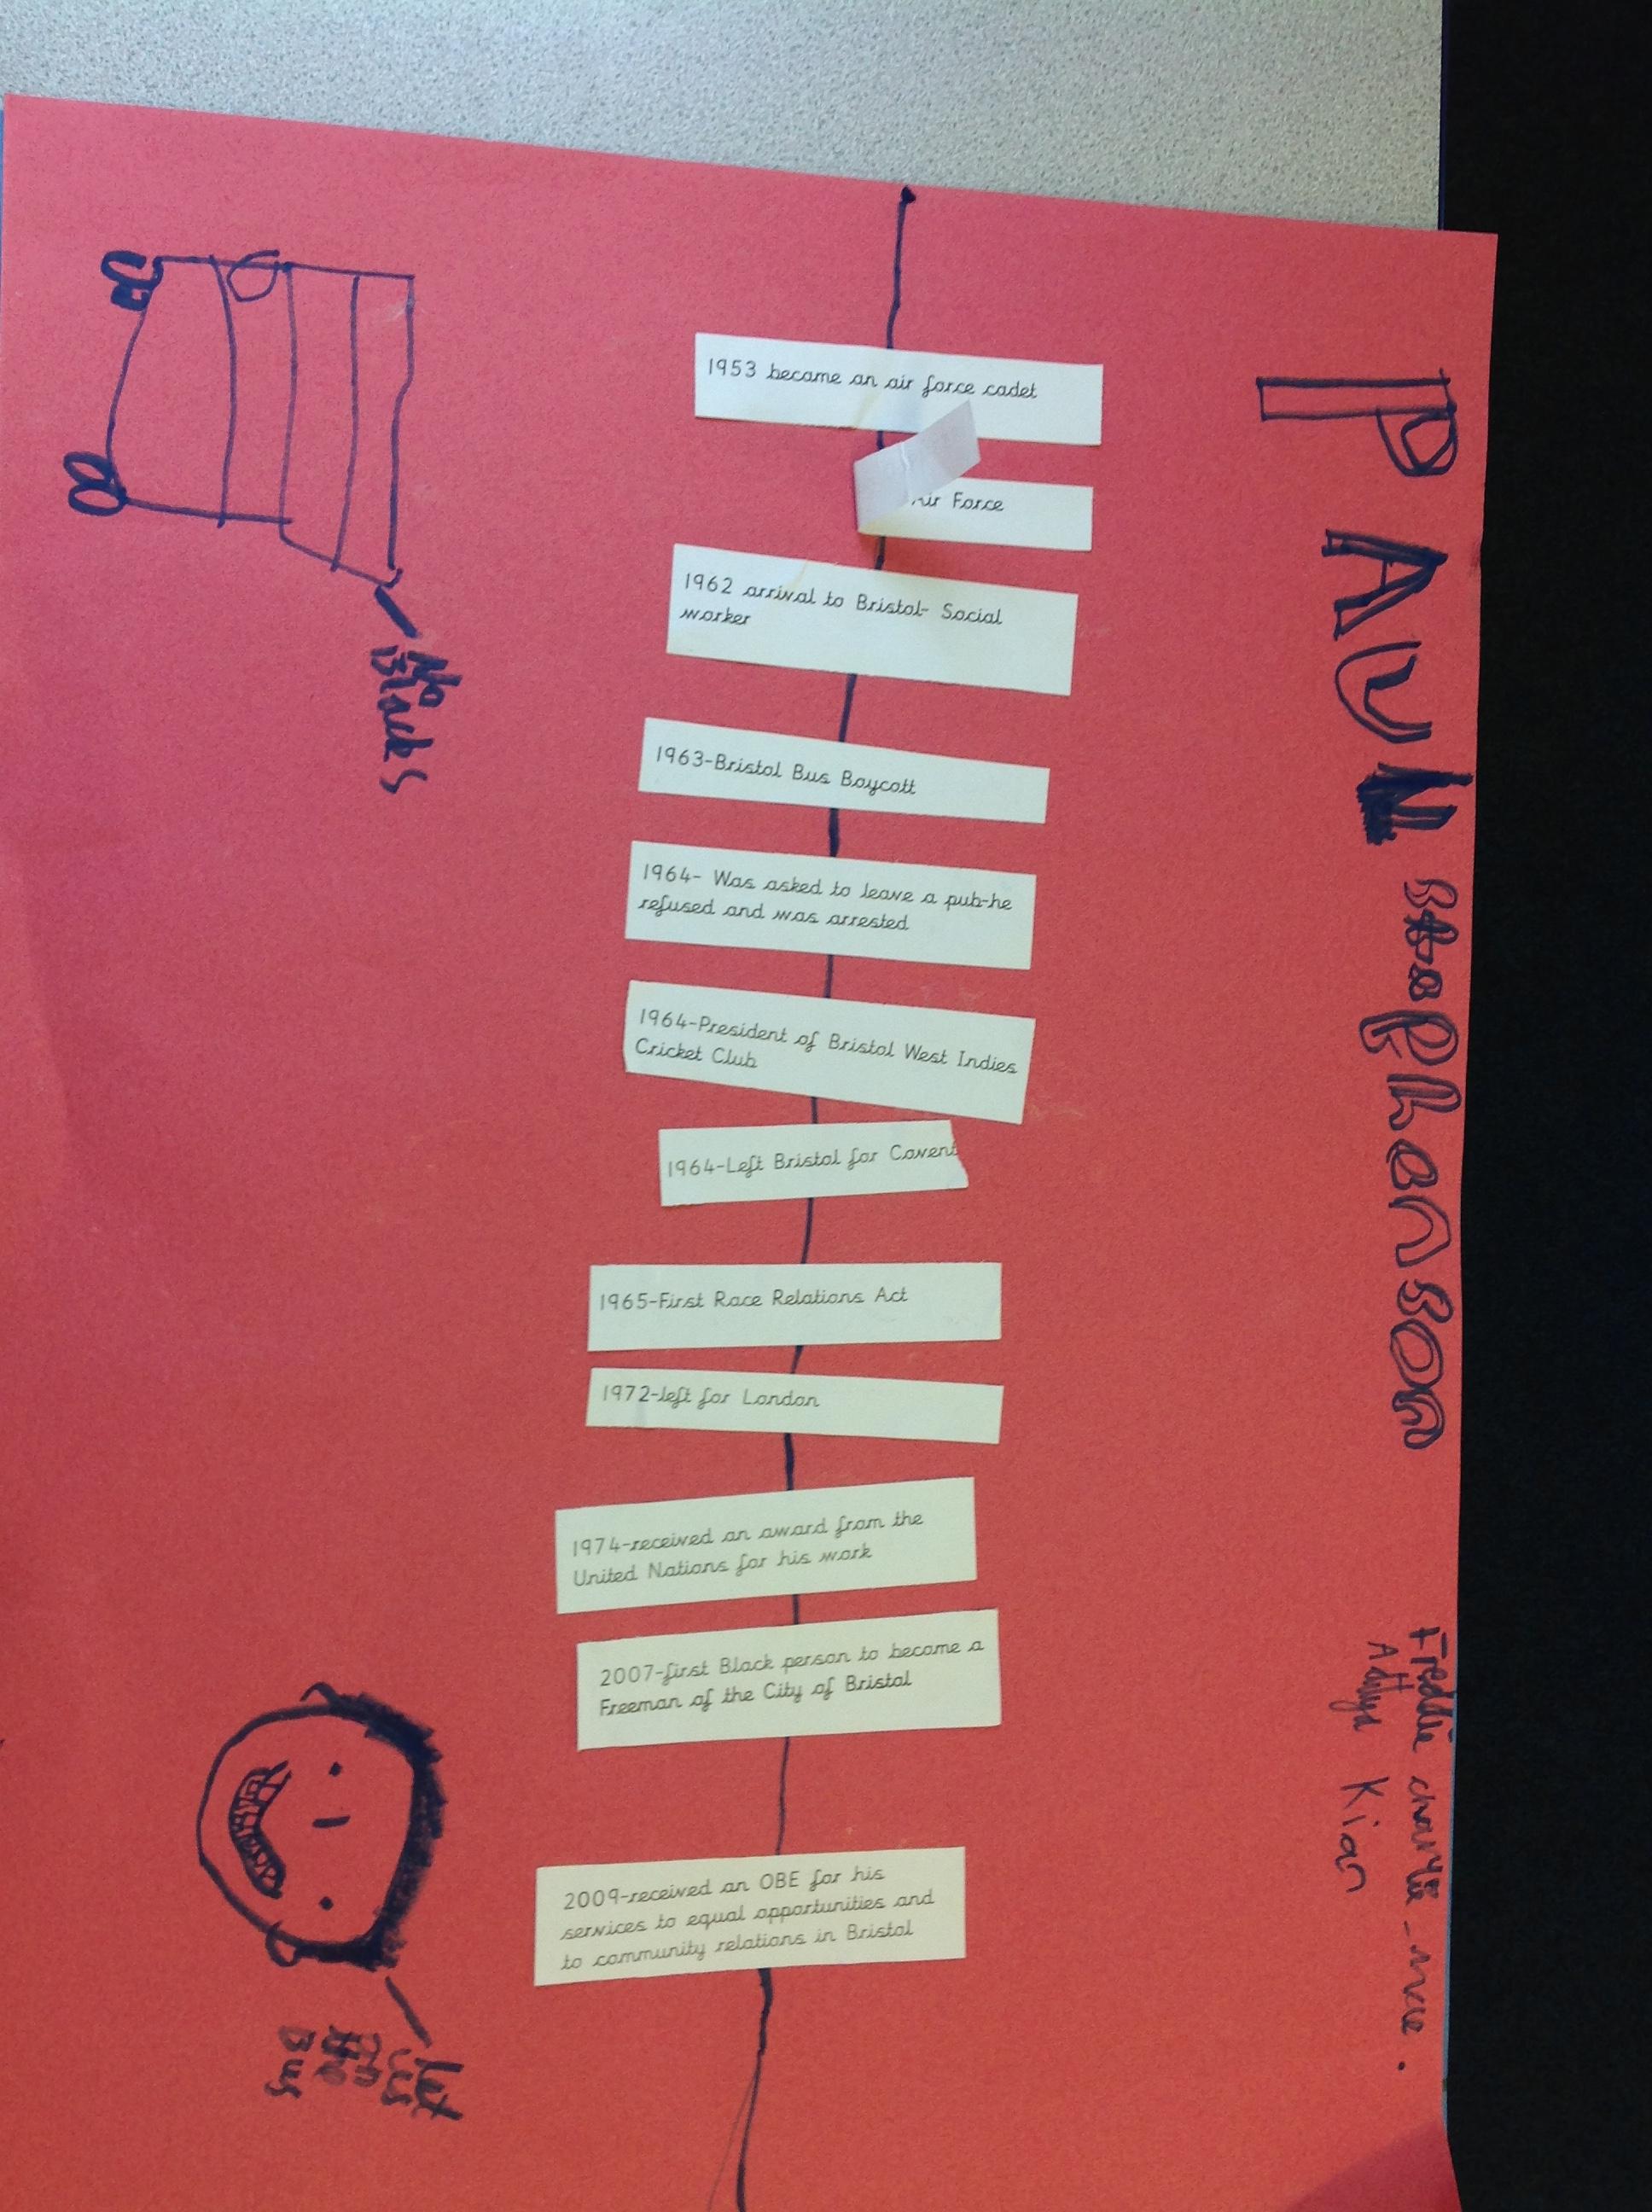 PAUL Stephenson
Freddie charlie-mae.
Aditya Kian
1953 became an air force cadet
Air Force
1962 arrival to Bristol- Social
worker
1963-Bristol Bus Boycott
1964- Was asked to leave a pub-he
refused and was arrested
1964-President of Bristol West Indies
Cricket Club
1964-Left Bristol for Covent
1965-First Race Relations Act
1972-left for London
1974-received an award from the
United Nations for his work
2007-first Black person to become a
Freeman of the City of Bristol
2009-received an OBE for his
services to equal opportunities and
to community relations in Bristol
No
Blacks
Let
us
on
the
Bus